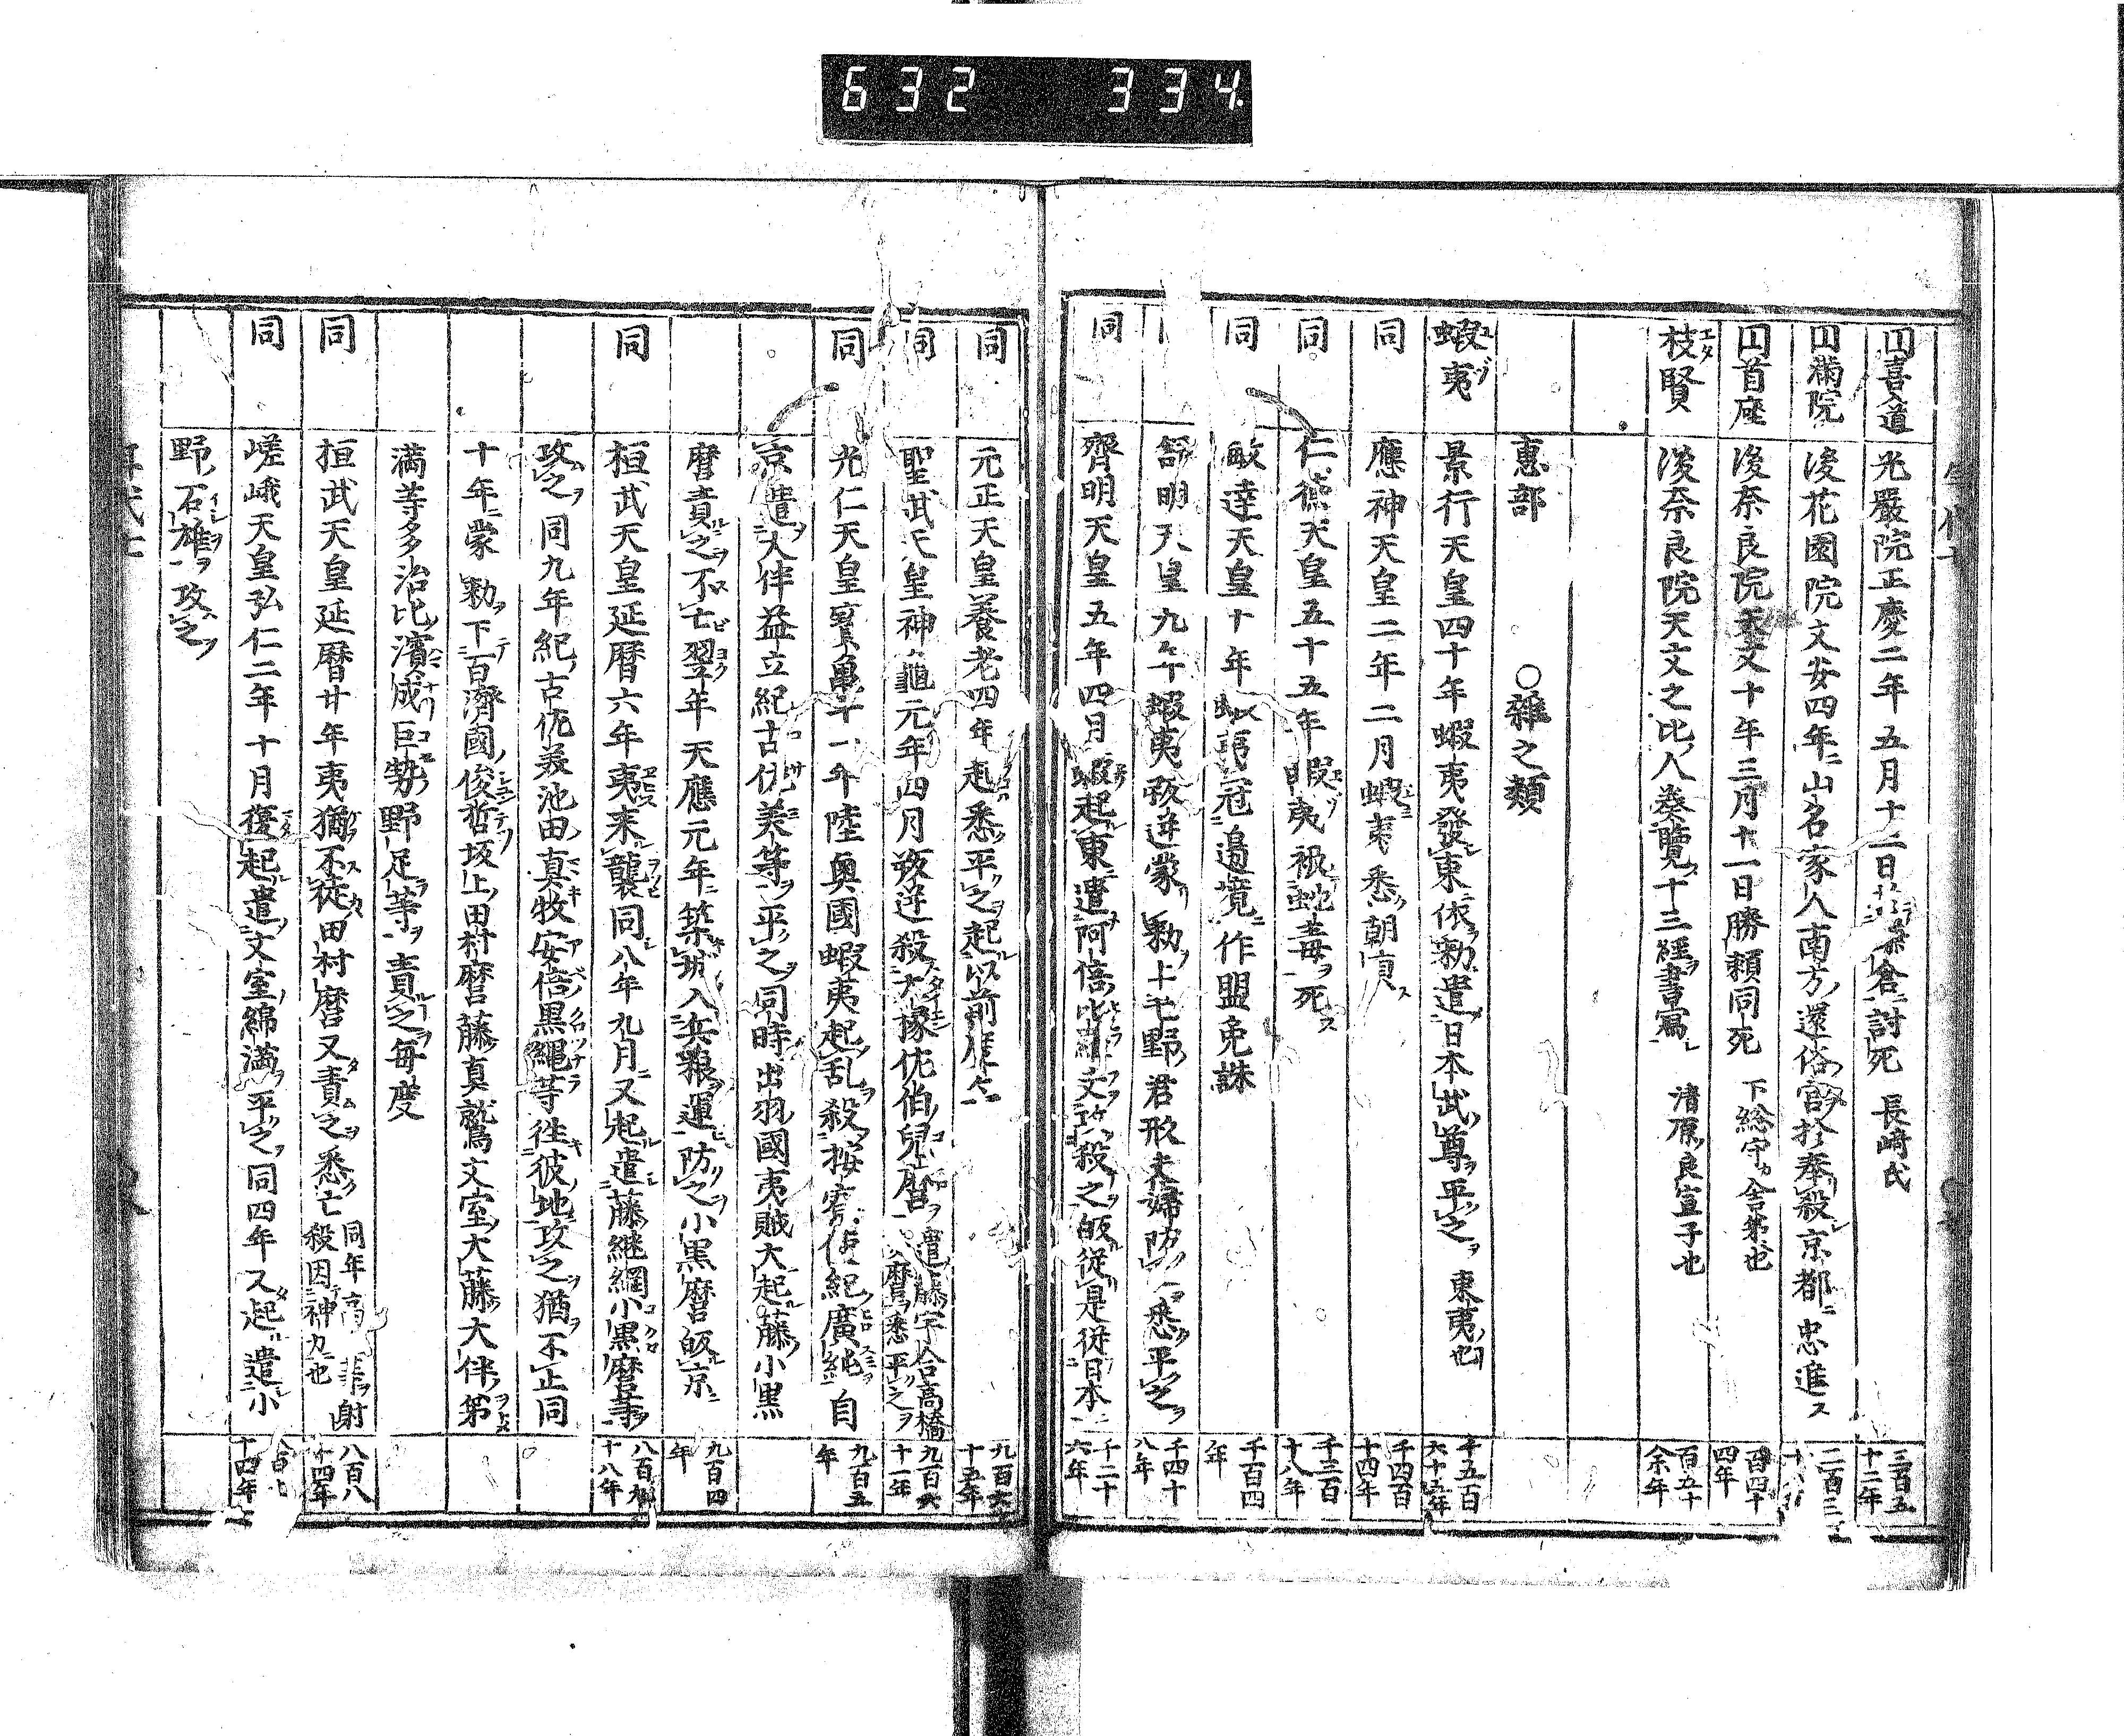 632 334
円喜入道 光嚴院正慶二年五月十二日 倉討死 長崎氏 三百五十二年
円満院 後花園院文安四年山名家人南方ノ還俗宮ヲ奉殺京都ニ忠進ス 二百三
円首座 後奈良院天文十年三月十一日勝頼同死 下総守カ舎弟也 百四十四年
枝賢 後奈良院天文之比ノ人奏覽ス十三經ヲ書寫 清原ノ良宣子也 百五十余年
惠部 ○雜之類
蝦夷 景行天皇四十年蝦夷發東依勅遣日本武尊ヲ平之 東夷也 千五百六十五年
同 應神天皇二年二月蝦夷悉朝貢ス 千四百十四年
同 仁德天皇五十五年蝦夷被蛇毒ヲ死ス 千三百十八年
同 敏達天皇十年蝦夷冠邉境ニ作盟免誅 千百四年
舒明天皇九年蝦夷叛逆蒙勅ヲ上毛野君形夫婦防之悉平之 千四十八年
同 齊明天皇五年四月蝦起東遣阿倍比羅文攻殺之皈從是従日本 千二十六年
同 元正天皇養老四年起悉平之起以前 九百六十五年
同 聖武天皇神龜元年四月叛逆殺大掾佐伯兒屋麿ヲ 遣藤宇合高橋 麿ヲ悉平之 九百六十一年
同 光仁天皇寳亀十一年陸奥國蝦夷起乱ヲ殺按察使紀廣純自 九百五年
京遣大伴益立紀古佐美等ヲ平之同時出羽國夷賊大起藤小黒
麿責之不亡翌年天應元年ニ築城入兵粮ヲ運防之小黒麿皈京ニ 九百四年
同 桓武天皇延暦六年夷来襲同八年九月又起遣藤継綱小黒麿等 八百九十八年
攻之同九年紀古佐美池田真牧安倍黒縄等往彼地攻之猶不止同
十年蒙勅下百濟國俊哲坂上田村麿藤真鷲文室大藤大伴弟
満等多治比濱成巨勢野足等ヲ責之毎度
同 桓武天皇延暦廿年夷猶不從田村麿又責之悉亡 同年高 射殺因神力也 八百八十四年
同 嵯峨天皇弘仁二年十月復起遣文室綿満ヲ平之同四年又起遣小 八百七十四年
野石雄ヲ攻之